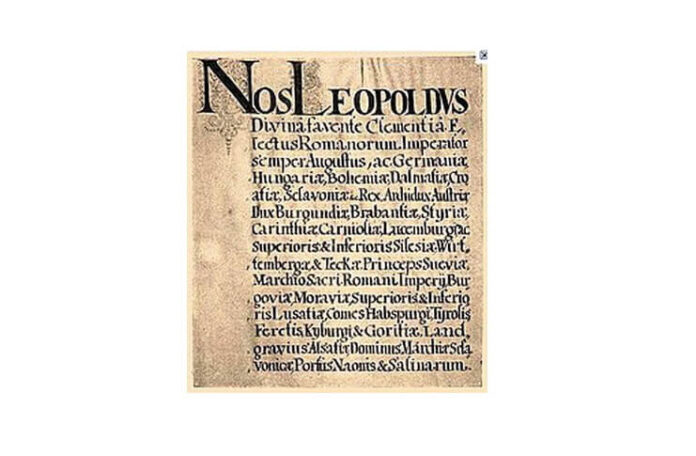 NOS LEOPOLDVS
Divina favente Clementiâ E,
lectus Romanorum Imperator
semper Augustus, ac Germaniæ
Hungariæ, Bohemiæ, Dalmatiæ, Cro
atiæ, Sclavoniæ Rex. Archidux Austriæ
Dux Burgundiæ, Brabantiæ, Styriæ,
Carinthiæ Carnioliæ, Lucemburgi, ac
Superioris & Inferioris Silesiæ, Wirt,
tembergæ, & Teckæ. Princeps Sueviæ,
Marchio Sacri Romani Imperij, Bur
goviæ Moraviæ, Superioris & Inferio
ris Lusatiæ, Comes Habspurgi, Tyrolis
Feretis, Kyburgi, & Goritiæ. Land,
gravius Alsatiæ, Dominus, Marchiæ Scla
vonicæ, Portus Naonis & Salinarum.